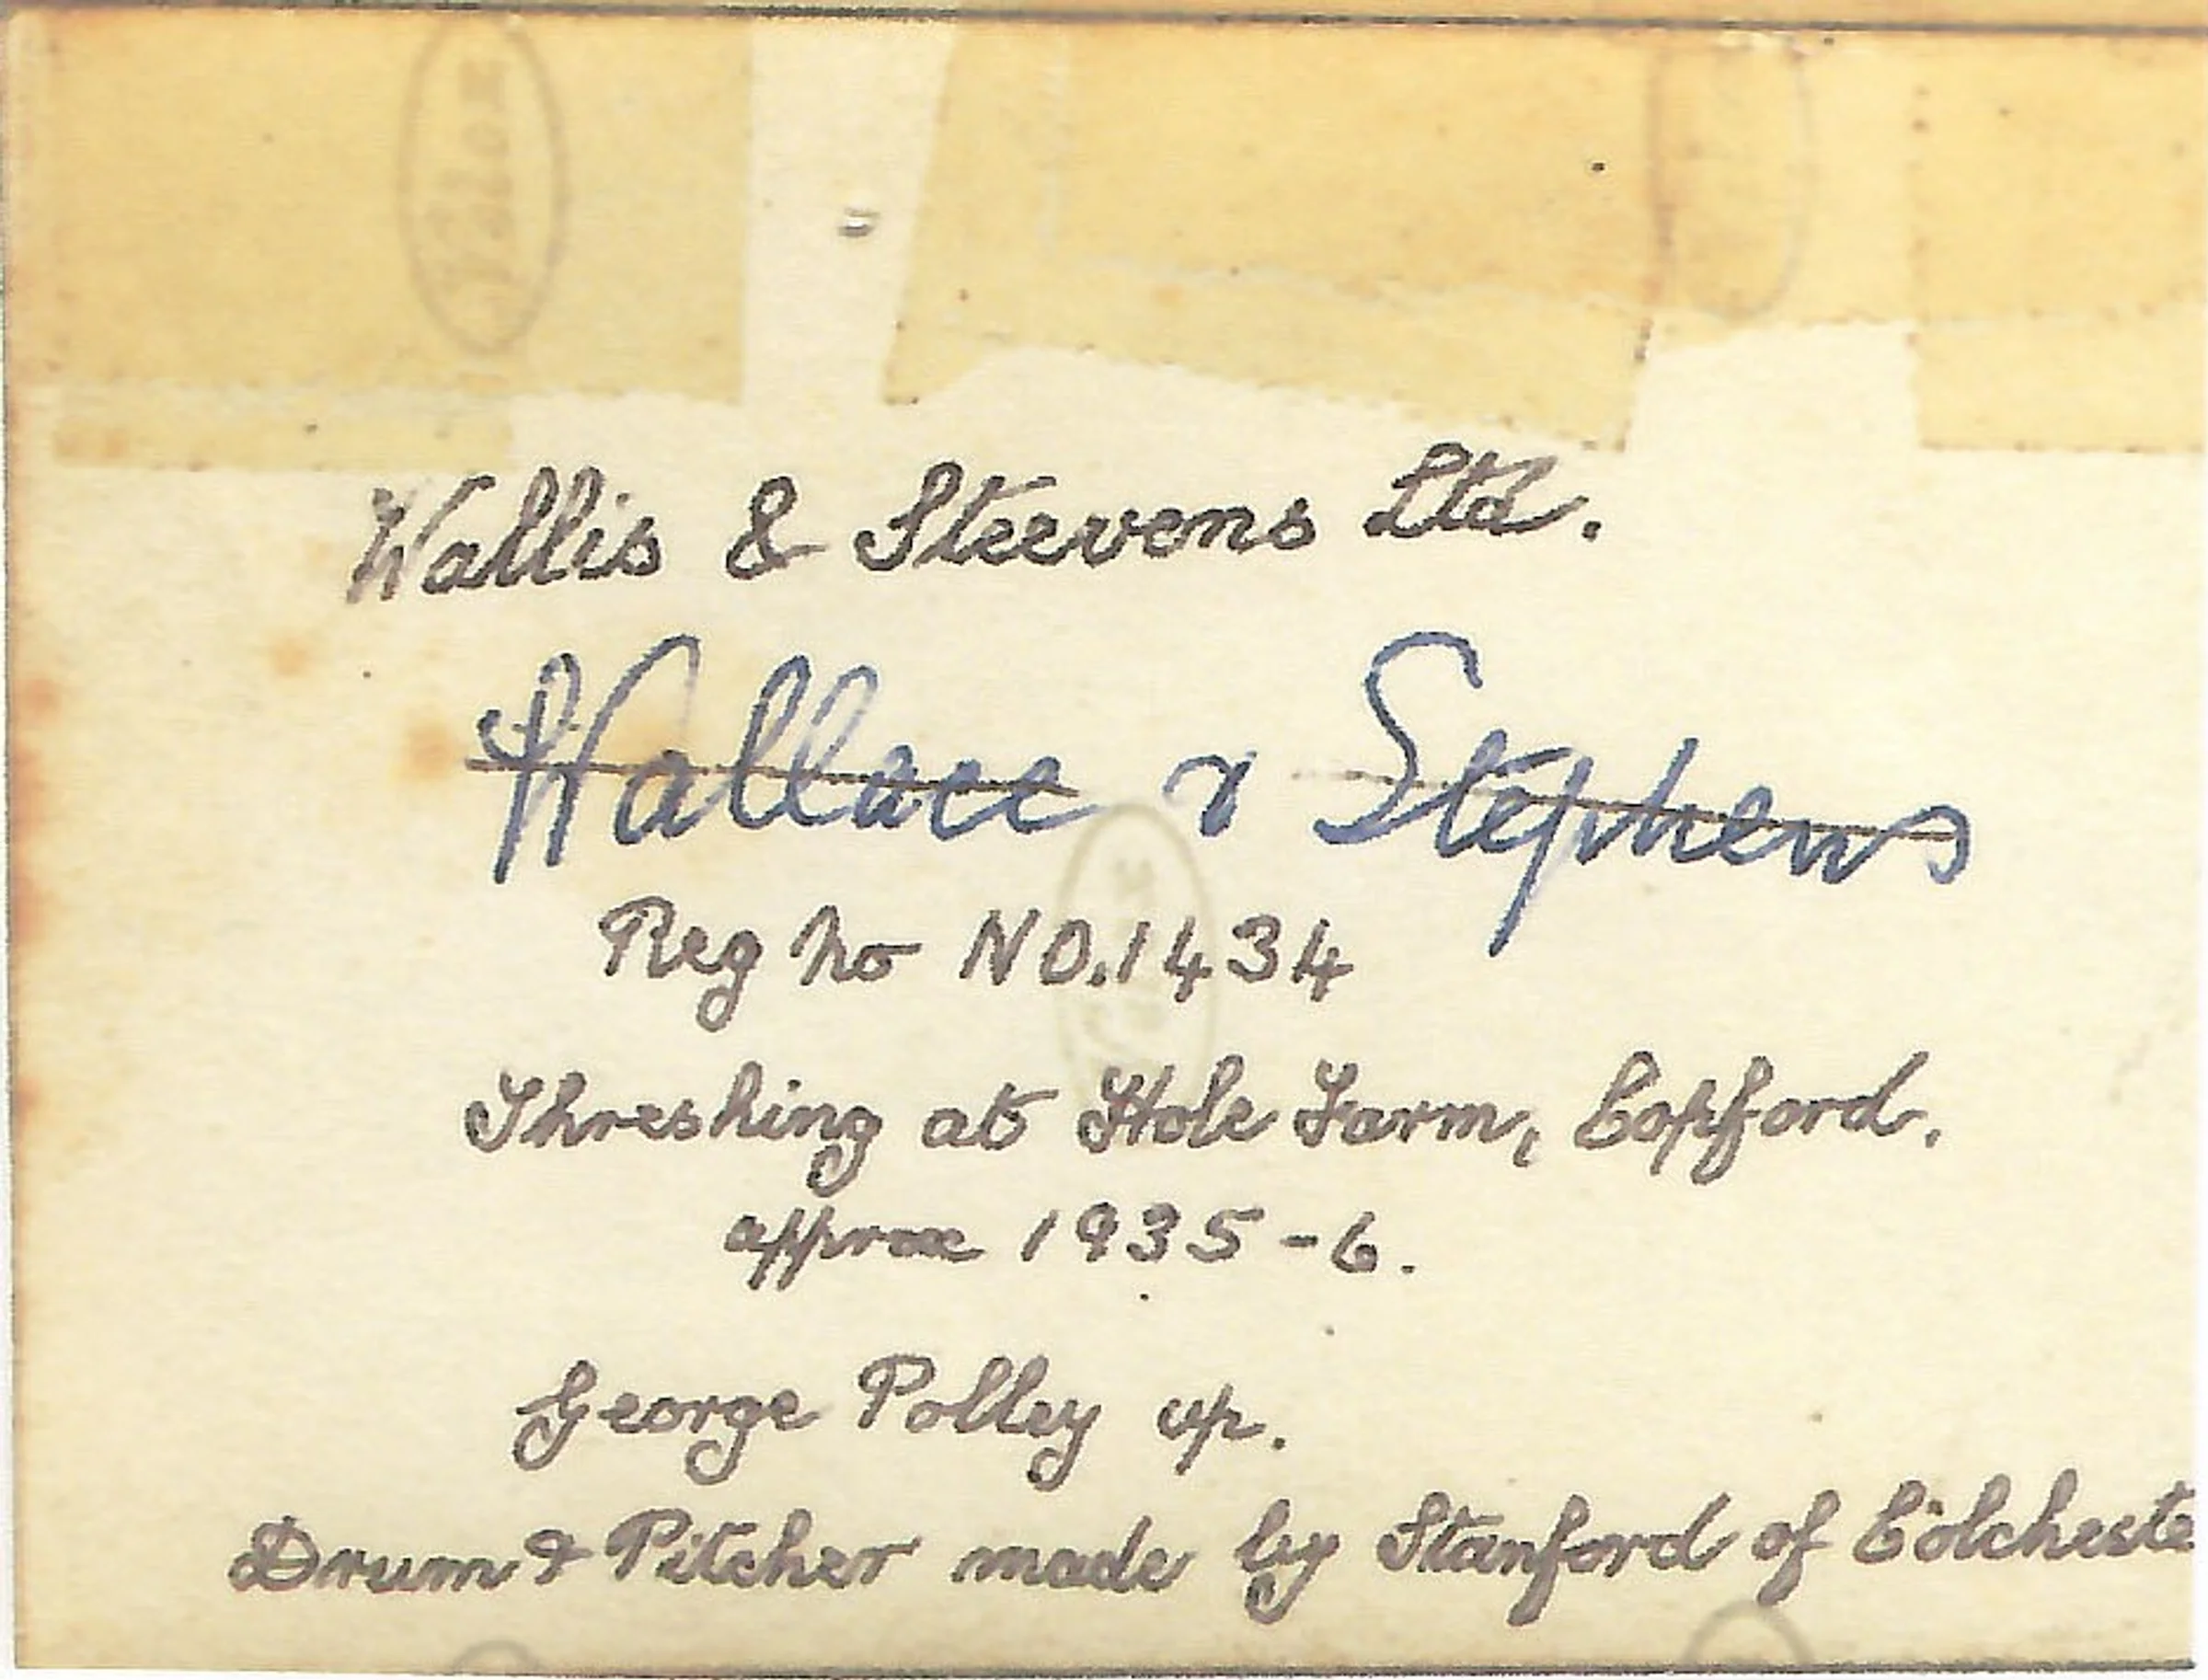 Wallis & Steevens Ltd.
Wallace & Stephens
Reg no NO.1434
Threshing at Hole Farm, Copford.
approx 1935-6.
George Polley up.
Drum & Pitcher made by Stanford of Colcheste